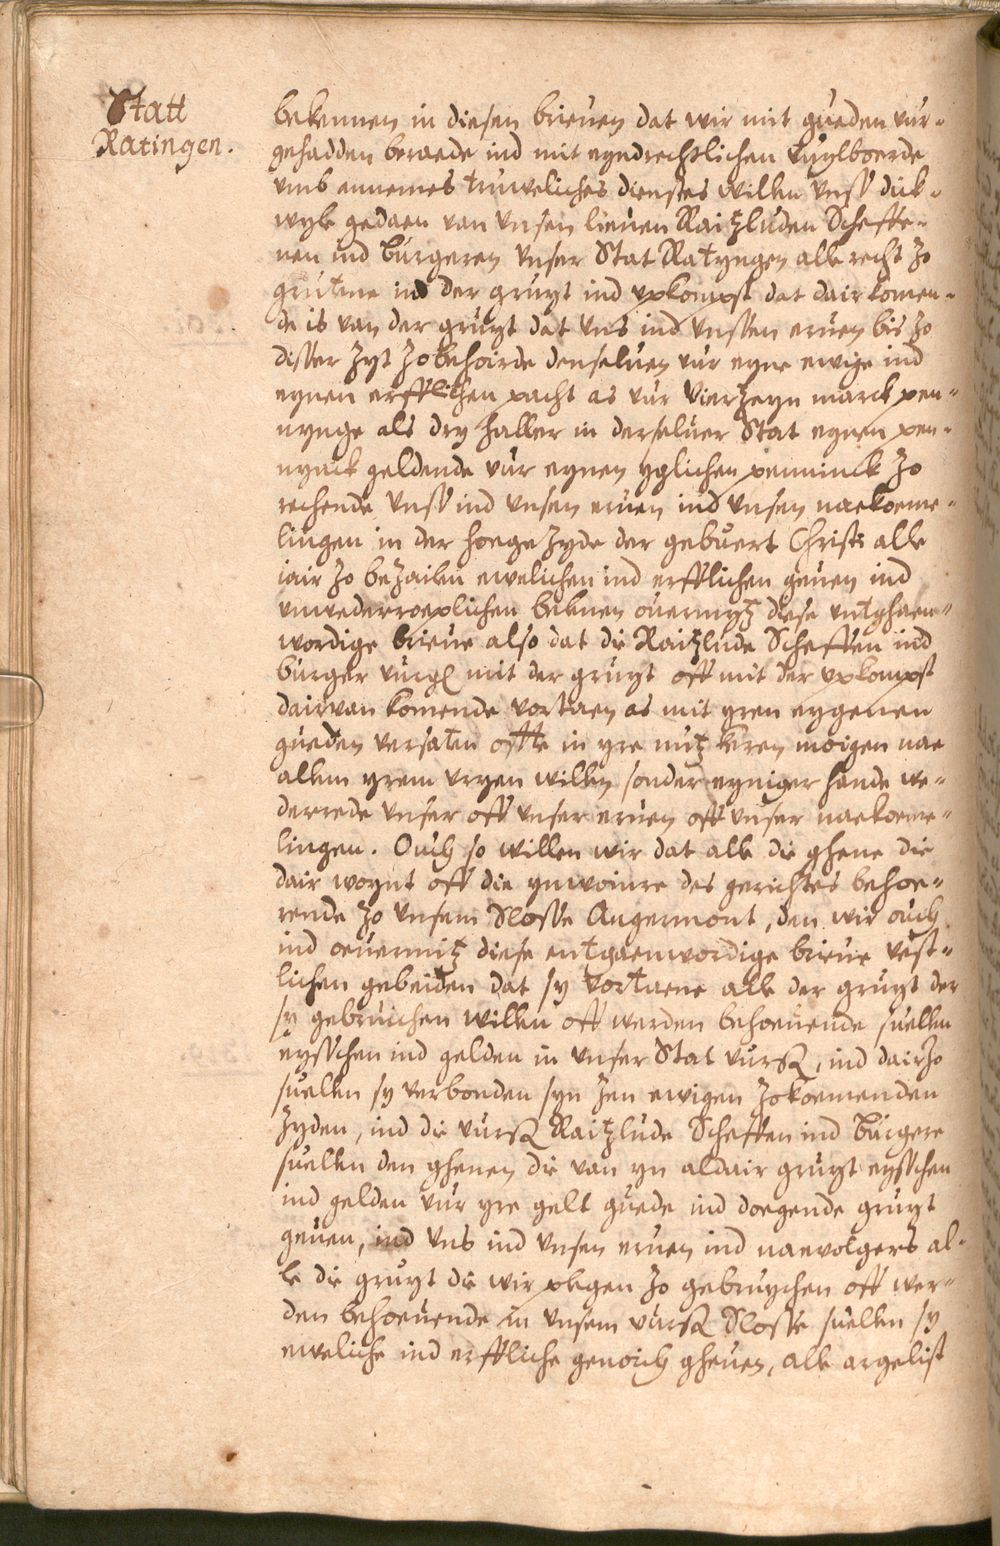 Statt
Ratingen.
bekennen in diesen brieuen dat wir mit gueden vur-
gehadden beraede ind mit eyndrechtlichen
vmb annemes truweliches dienstes willen vnss dick-
wyle gedaen van vnsen lieuen Raitzluden Scheffe-
nen ind burgeren vnser Stat Ratyngen alle recht zo
grutme ind der gruyt ind vpkompst dat dair komen-
de is van der gruyt dat vns ind vnssen eruen bis zo
disser zyt zobehoirde denseluen vur eyne ewige ind
eynen erfflichen pacht as vur vierzeyn marck pen-
nynge als dry haller in derseluer Stat eynen pen-
nynck geldende vur eynen yglichen penninck zo
rechende vnss ind vnsen eruen ind vnsen naekoeme-
lingen in der hoegezyde der gebuert Christi alle
iair zo bezailen ewelichen ind erfflichen geuen ind
vnwederroeplichen ouermytz diese vntghaen-
wordige brieue also dat die Raitzlude Scheffen ind
burger vurg mit der gruyt off mit der vpkompst
dair van komende vortaen as mit yren eygenen
gueden versaten offte in yre nutz keren moigen nae
allem yrem vryen willen sonder eyniger hande we-
derrede vnser off vnser eruen off vnser naekoeme-
lingen. Ouch so willen wir dat alle die ghene die
dair woynt off die ynwoinre des gerichtes behoe-
rende zo vnsem Slosse Angermont, den wir ouch
ind oeuermitz diese entgaenwordige brieue vest-
lichen gebeiden dat sy vortaene alle der gruyt der
sy gebruichen willen off werden behoeuende suellen
eysschen ind gelden in vnser Stat vurß, ind dair zo
suellen sy verbonden syn zen ewigen zokoemenden
zyden, ind die vurß Raitzlude Scheffen ind burgere
suellen den ghenen die van yn aldair gruyt eysschen
ind gelden vur yre gelt guede ind doegende gruyt
geuen, ind vns ind vnsen eruen ind naevolgers al-
le die gruyt die wir plegen zo gebruychen off wer-
den behoeuende in vnsem vurß Slosse suellen sy
eweliche ind erffliche genoich gheuen, alle argelist